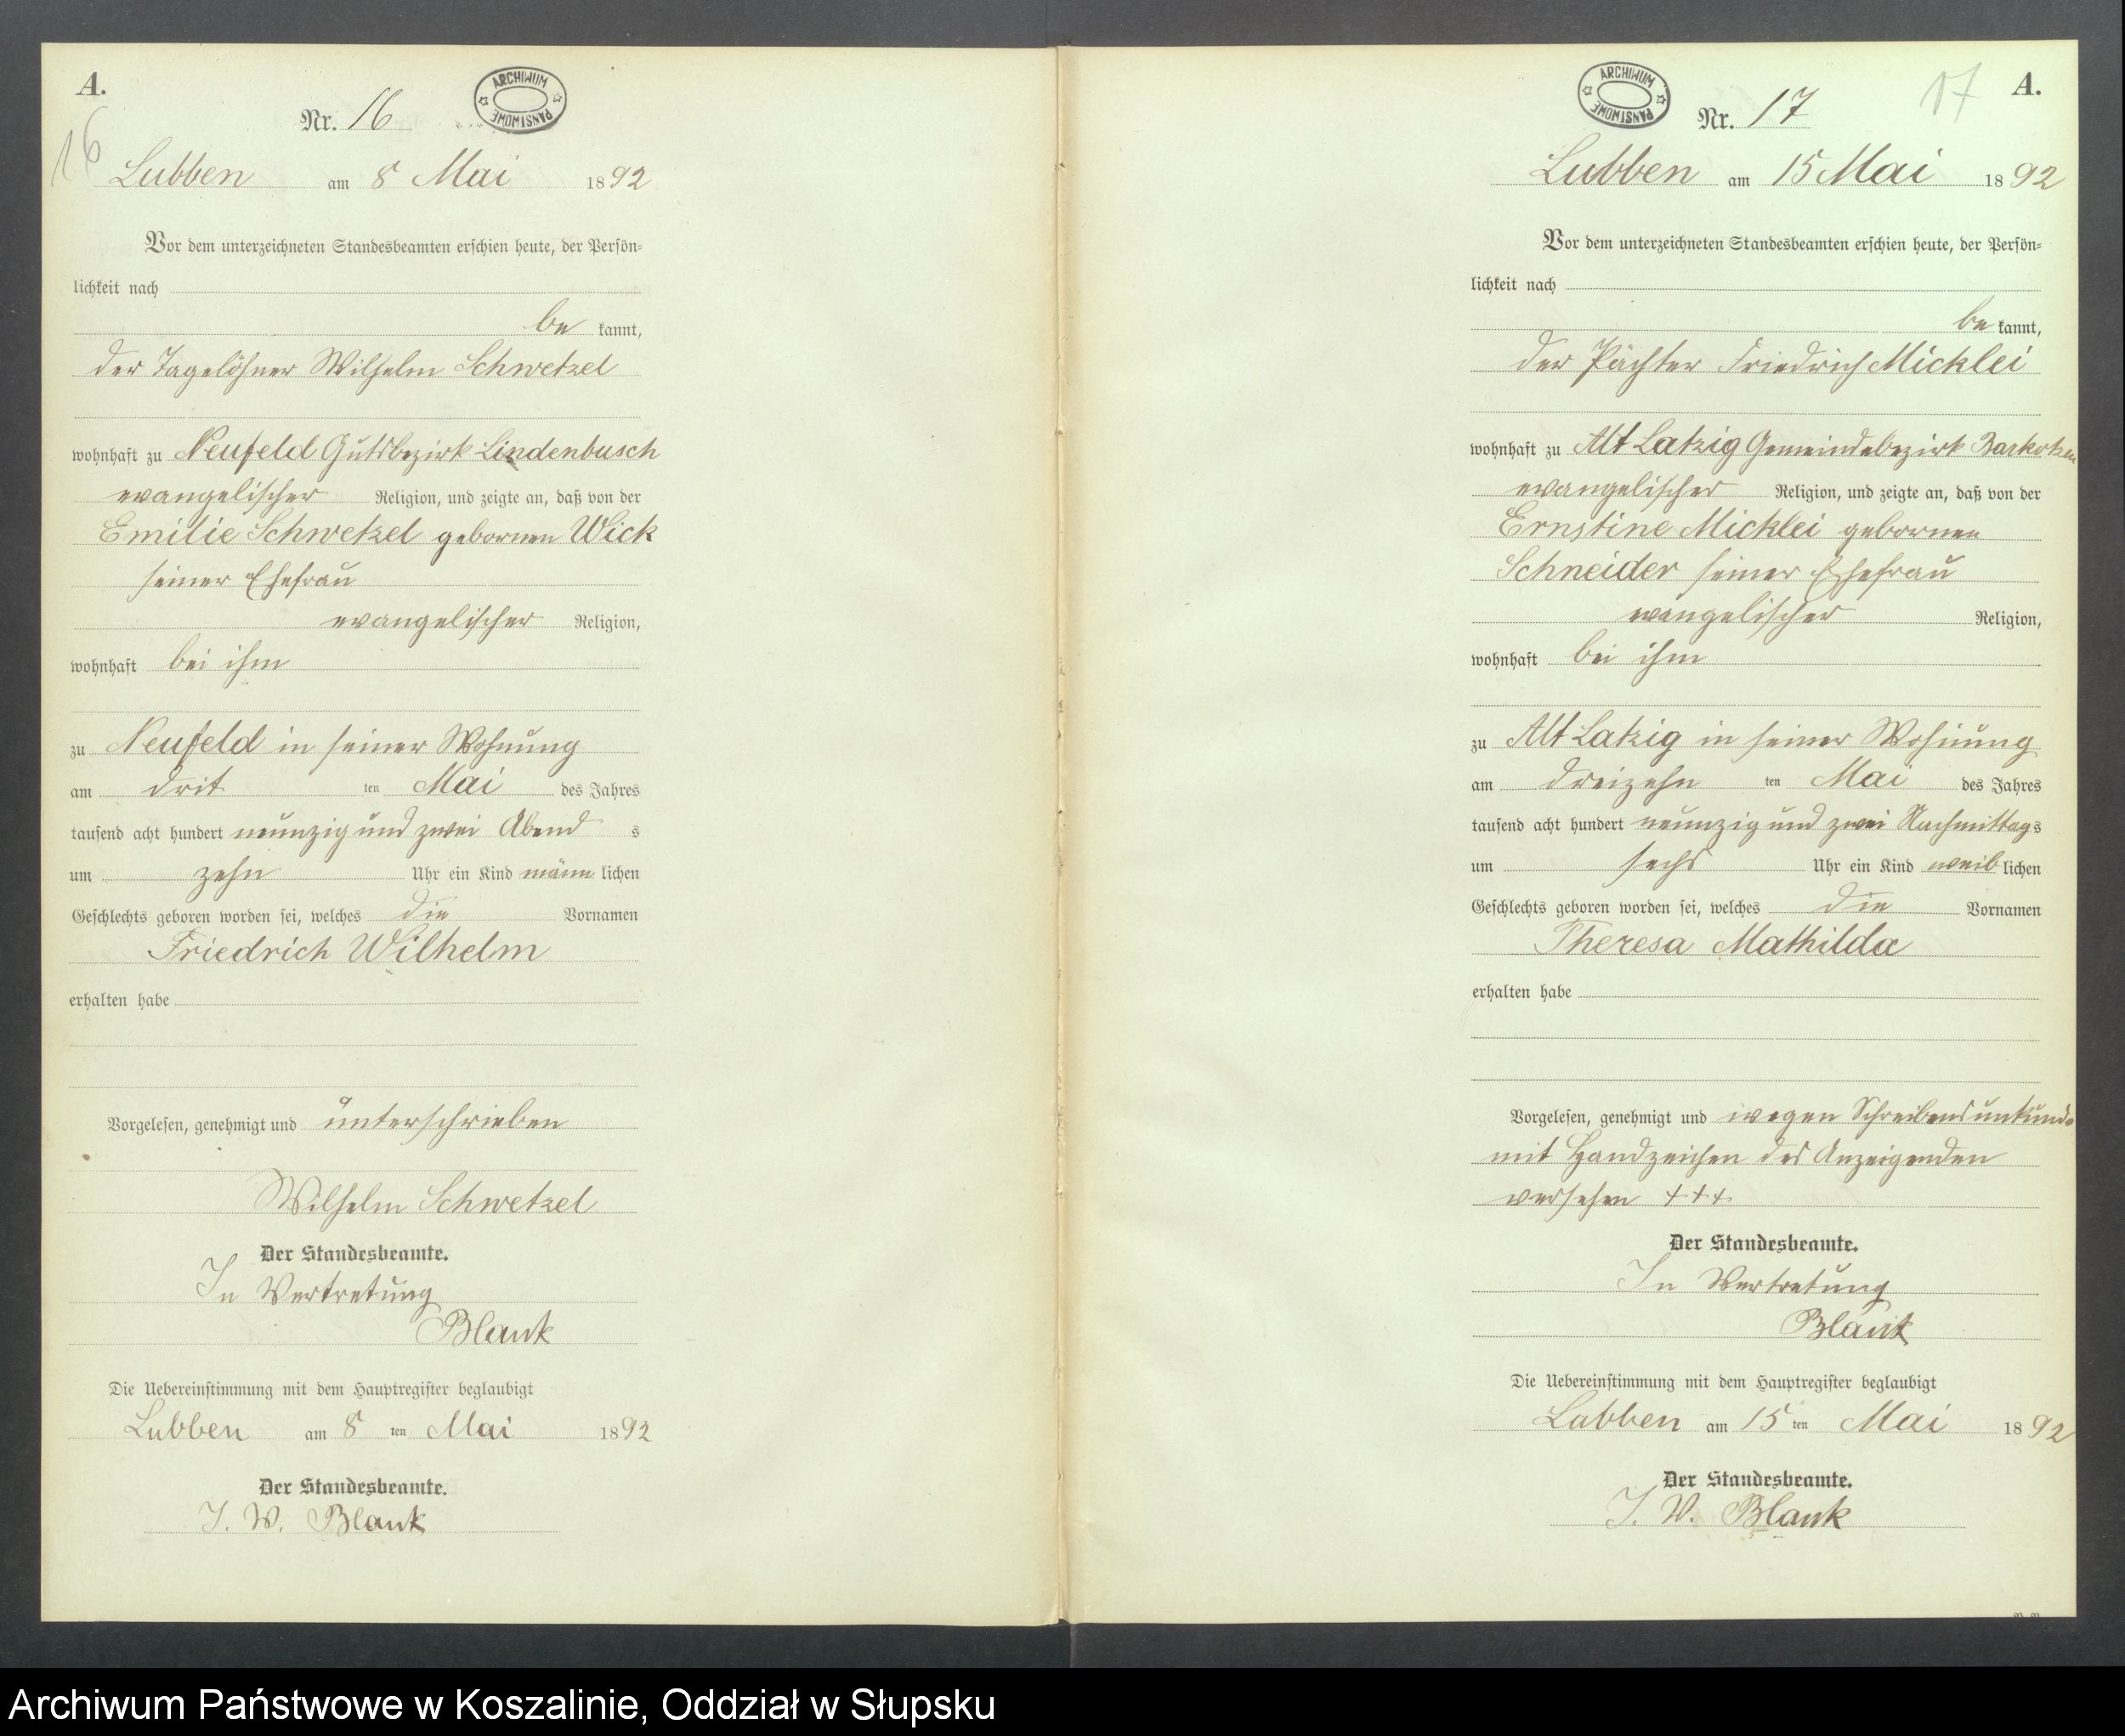 A.
ARCHIWUM PAŃSTWOWE
Nr. 16
16
Lubben am 8 Mai 1892
Vor dem unterzeichneten Standesbeamten erschien heute, der Persön=
lichkeit nach
be kannt,
der Tagelöhner Wilhelm Schwetzel
wohnhaft zu Neufeld Gutsbezirk Lindenbusch
evangelischer Religion, und zeigte an, daß von der
Emilie Schwetzel gebornen Wick
seiner Ehefrau
evangelischer Religion,
wohnhaft bei ihm
zu Neufeld in seiner Wohnung
am drit ten Mai des Jahres
tausend acht hundert neunzig und zwei Abend s
um zehn Uhr ein Kind männ lichen
Geschlechts geboren worden sei, welches die Vornamen
Friedrich Wilhelm
erhalten habe
Vorgelesen, genehmigt und unterschrieben
Wilhelm Schwetzel
Der Standesbeamte.
In Vertretung
Blank
Die Uebereinstimmung mit dem Hauptregister beglaubigt
Lubben am 8 ten Mai 1892
Der Standesbeamte.
J. V. Blank
A.
17
ARCHIWUM PAŃSTWOWE
Nr. 17
Lubben am 15 Mai 1892
Vor dem unterzeichneten Standesbeamten erschien heute, der Persön=
lichkeit nach
be kannt,
der Pächter Friedrich Micklei
wohnhaft zu Alt Latzig Gemeindebezirk Barkotzen
evangelischer Religion, und zeigte an, daß von der
Ernstine Micklei gebornen
Schneider seiner Ehefrau
evangelischer Religion,
wohnhaft bei ihm
zu Alt Latzig in seiner Wohnung
am dreizehn ten Mai des Jahres
tausend acht hundert neunzig und zwei Nachmittags
um sechs Uhr ein Kind weib lichen
Geschlechts geboren worden sei, welches die Vornamen
Theresa Mathilda
erhalten habe
Vorgelesen, genehmigt und wegen Schreibensunkunde
mit Handzeichen des Anzeigenden
versehen +++
Der Standesbeamte.
In Vertretung
Blank
Die Uebereinstimmung mit dem Hauptregister beglaubigt
Labben am 15 ten Mai 1892
Der Standesbeamte.
J. V. Blank
Archiwum Państwowe w Koszalinie, Oddział w Słupsku